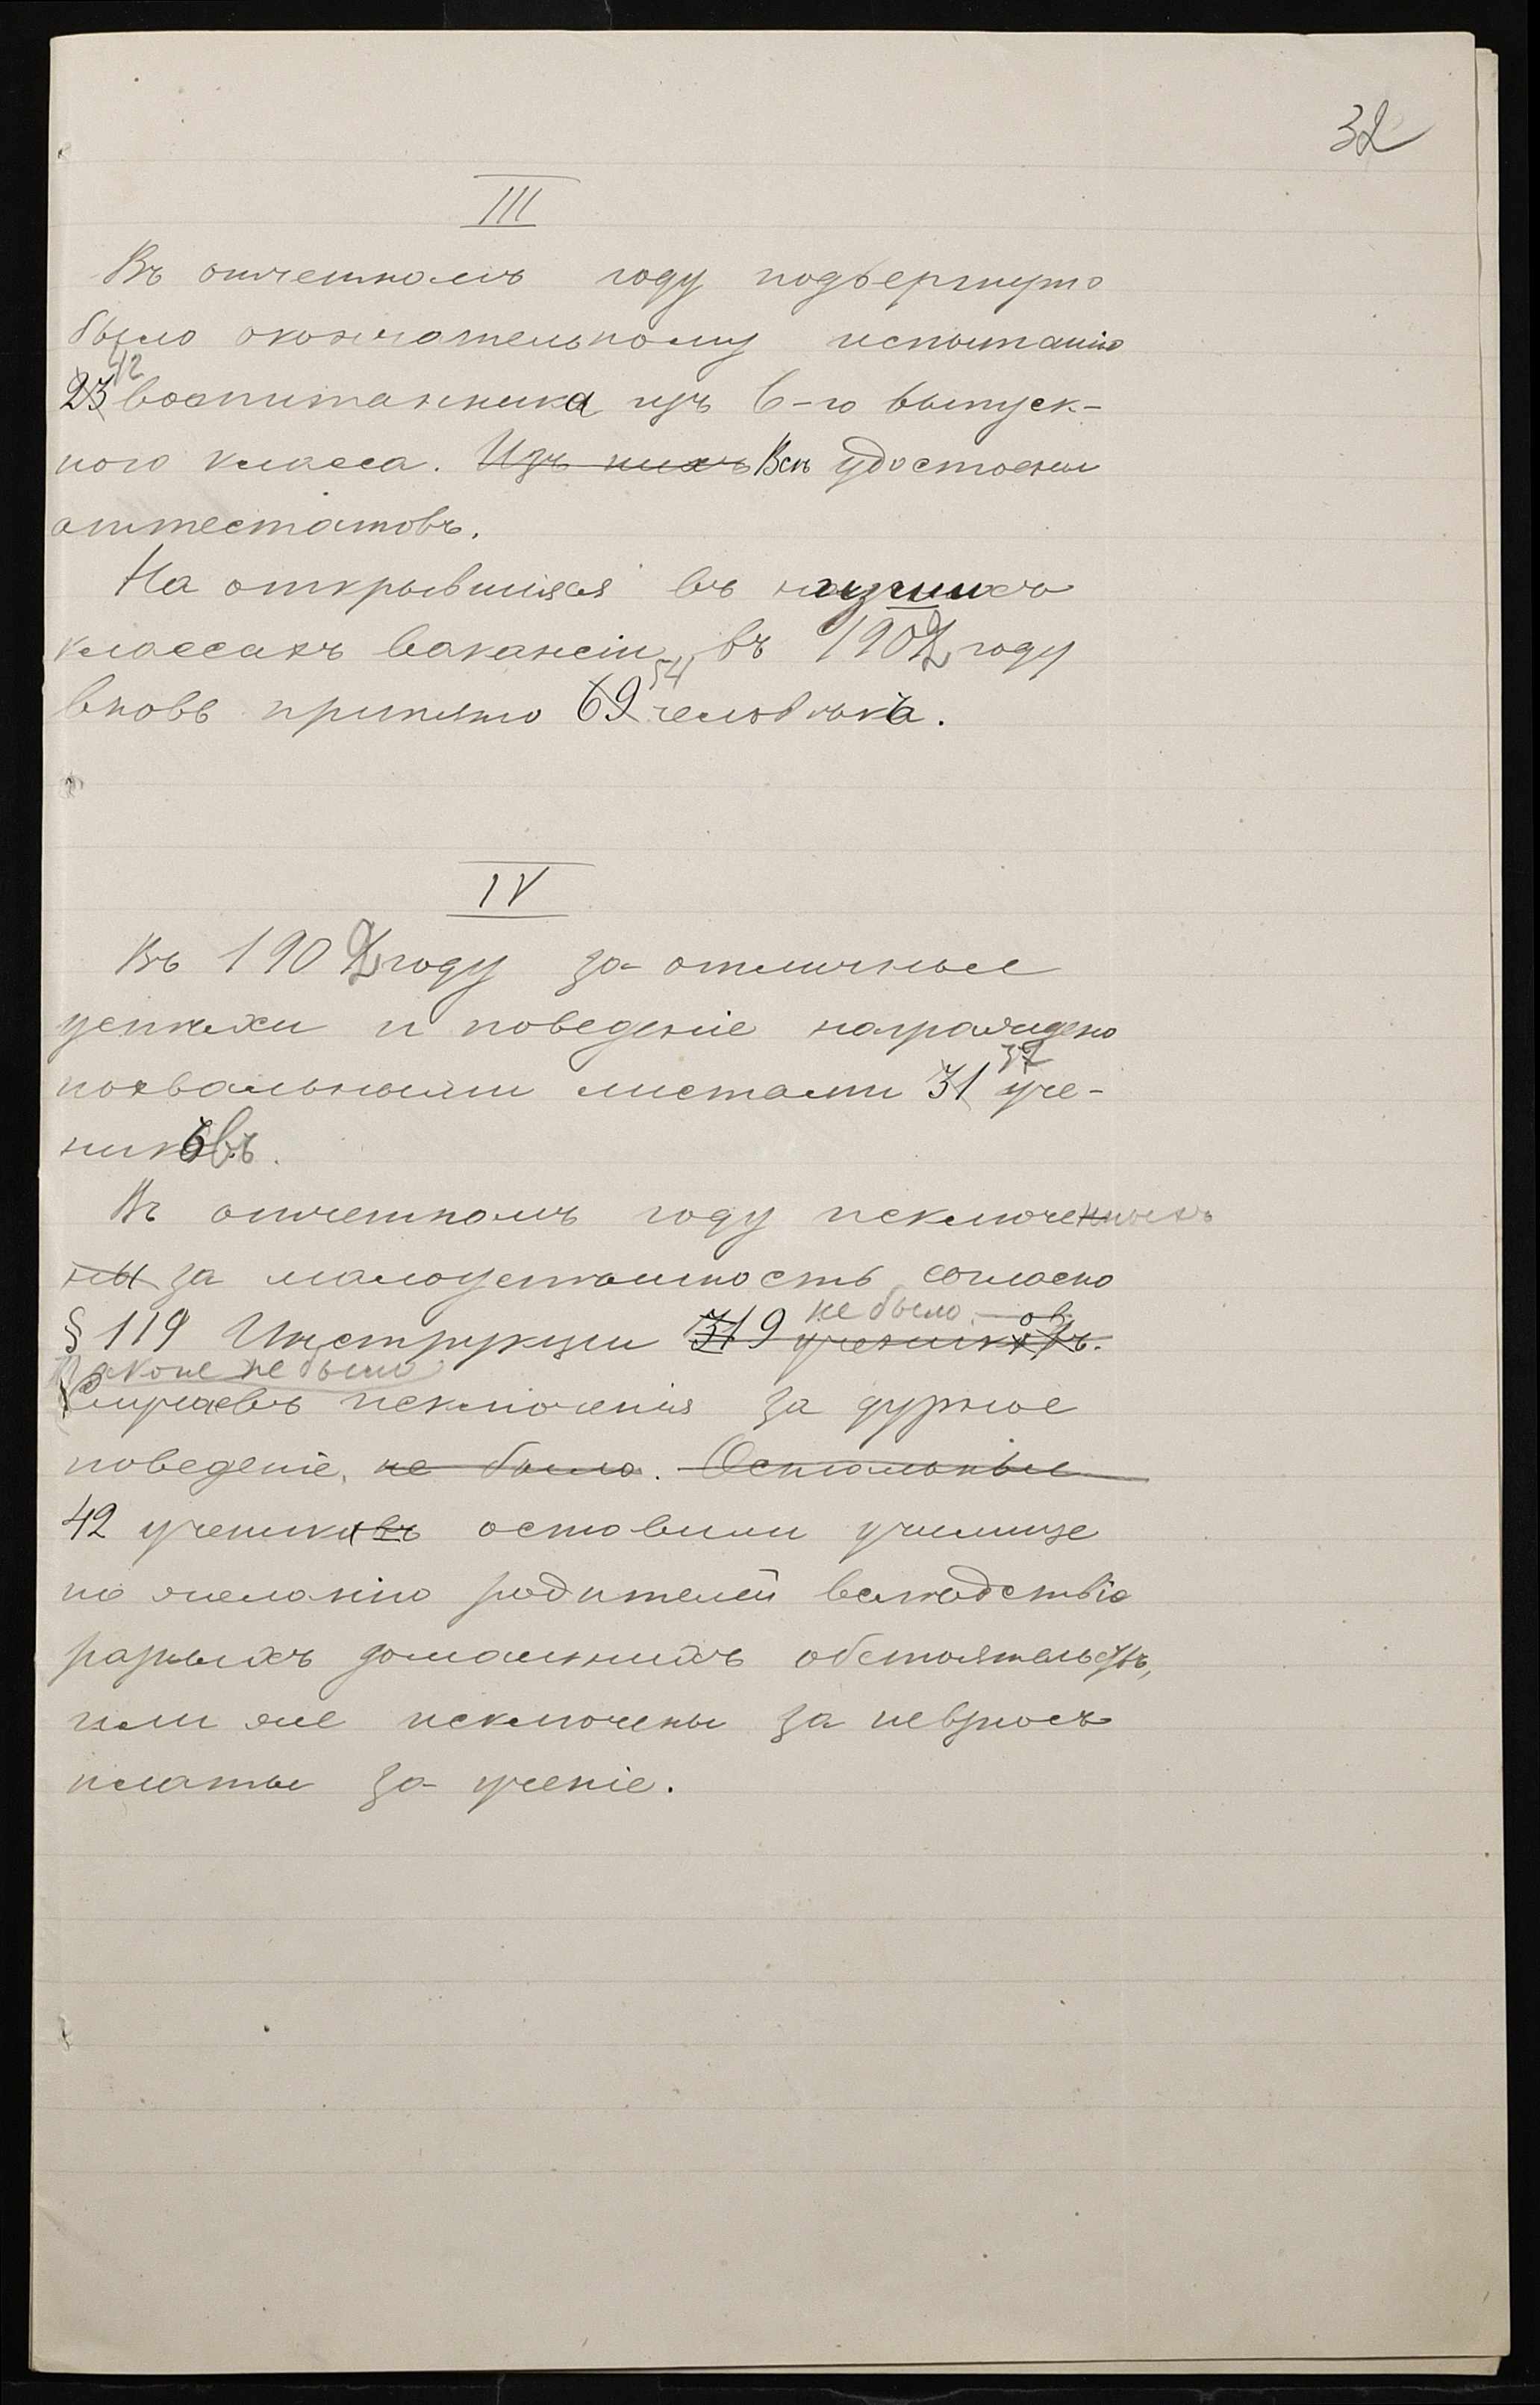 32
III
Въ отчетномъ году подвергнуто
было окончательному испытанію
42
23 воспитанника изъ 6-го выпуск-
ного класса. Изъ нихъ Всѣ удостоены
аттестатовъ.
На открывшіяся въ низшихъ
классахъ вакансіи въ 1902 году
54
вновь принято 69 человѣка.
IV
Въ 1902 году за отличные
успѣхи и поведеніе награждено
37
похвальными листами 31 уче-
никовъ.
Въ отчетномъ году исключенныхъ
ны за малоуспѣшность согласно
не было ов
§ 119 Инструкции 319 учениковъ.
Также не было
Случаевъ исключенія за дурное
поведеніе, не было. Остальные
42 учениковъ оставили училище
по желанію родителей вслѣдствіе
разныхъ домашнихъ обстоятельствъ,
или же исключены за невзносъ
платы за ученіе.